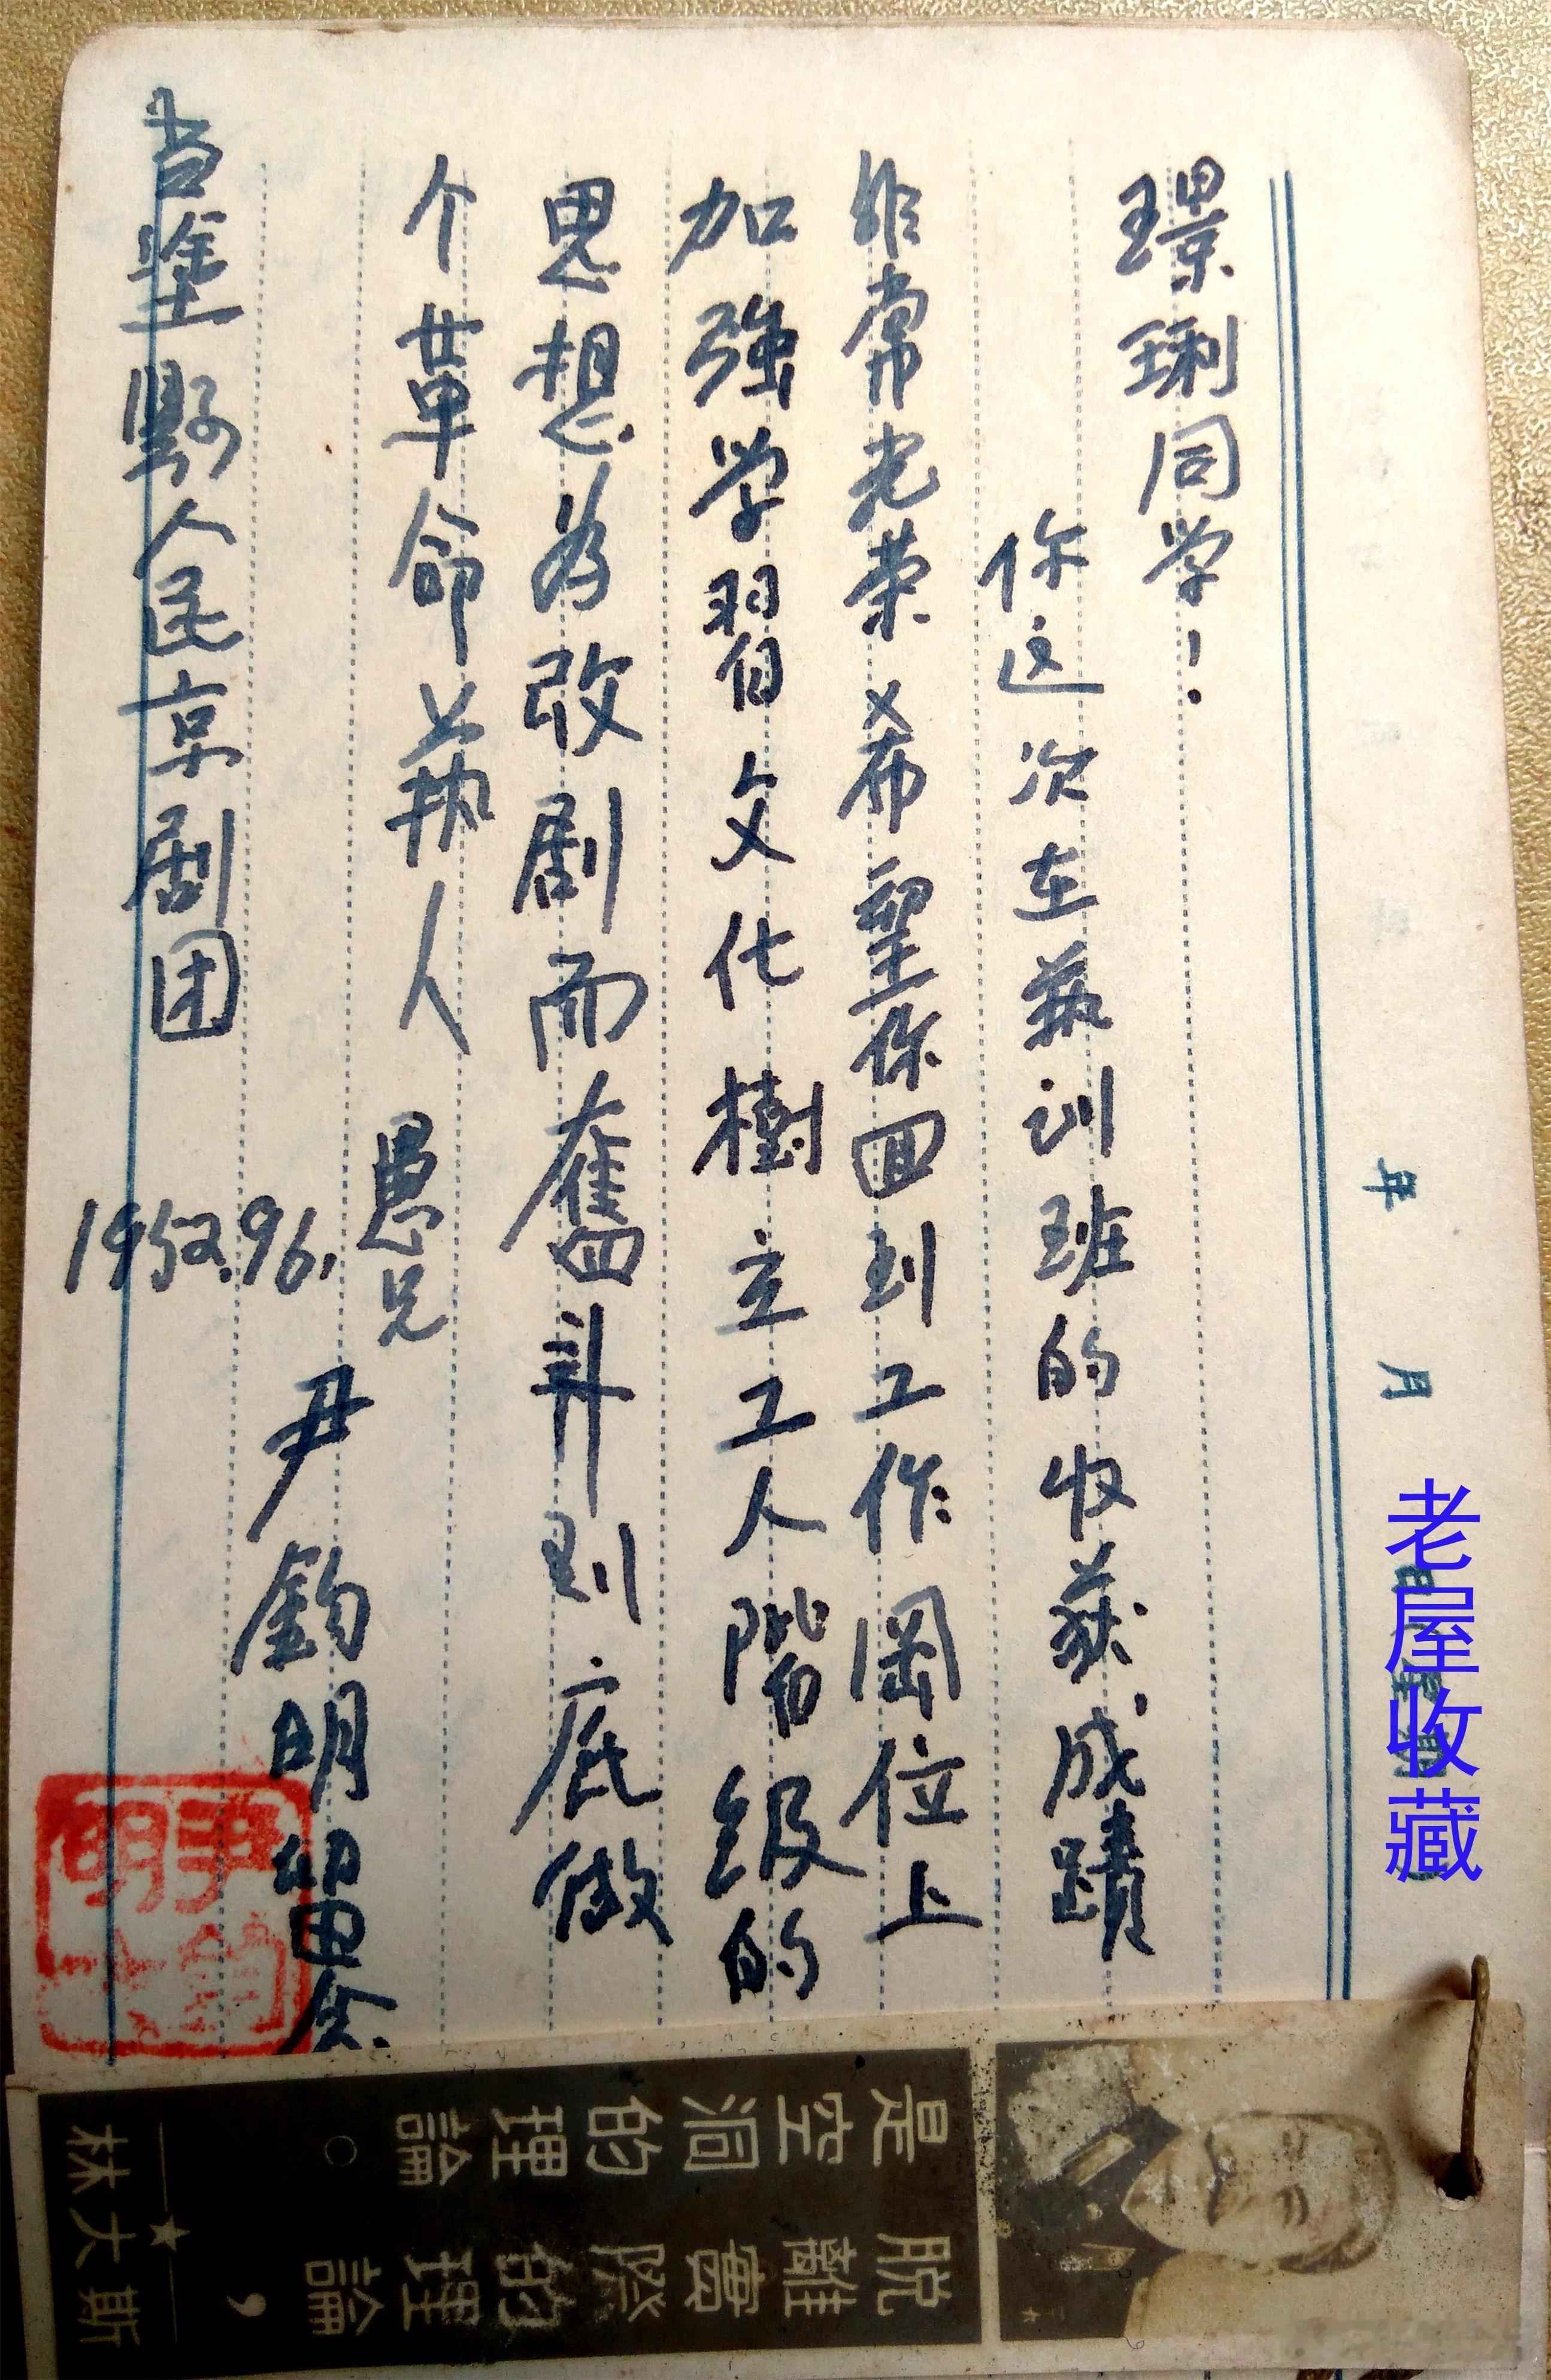 年 月
老屋收藏
璟琍同学!
你这次在蓺训班的收获成蹟
非常光荣 希望你回到工作岡位上
加强学習文化樹立工人階級的
思想为改剧而奮斗到底做
个革命蓺人 愚兄
尹鈞明留念
1952.9.6.
当塗縣人民京剧团
脫離實際的理論,
是空洞的理論。
斯大林